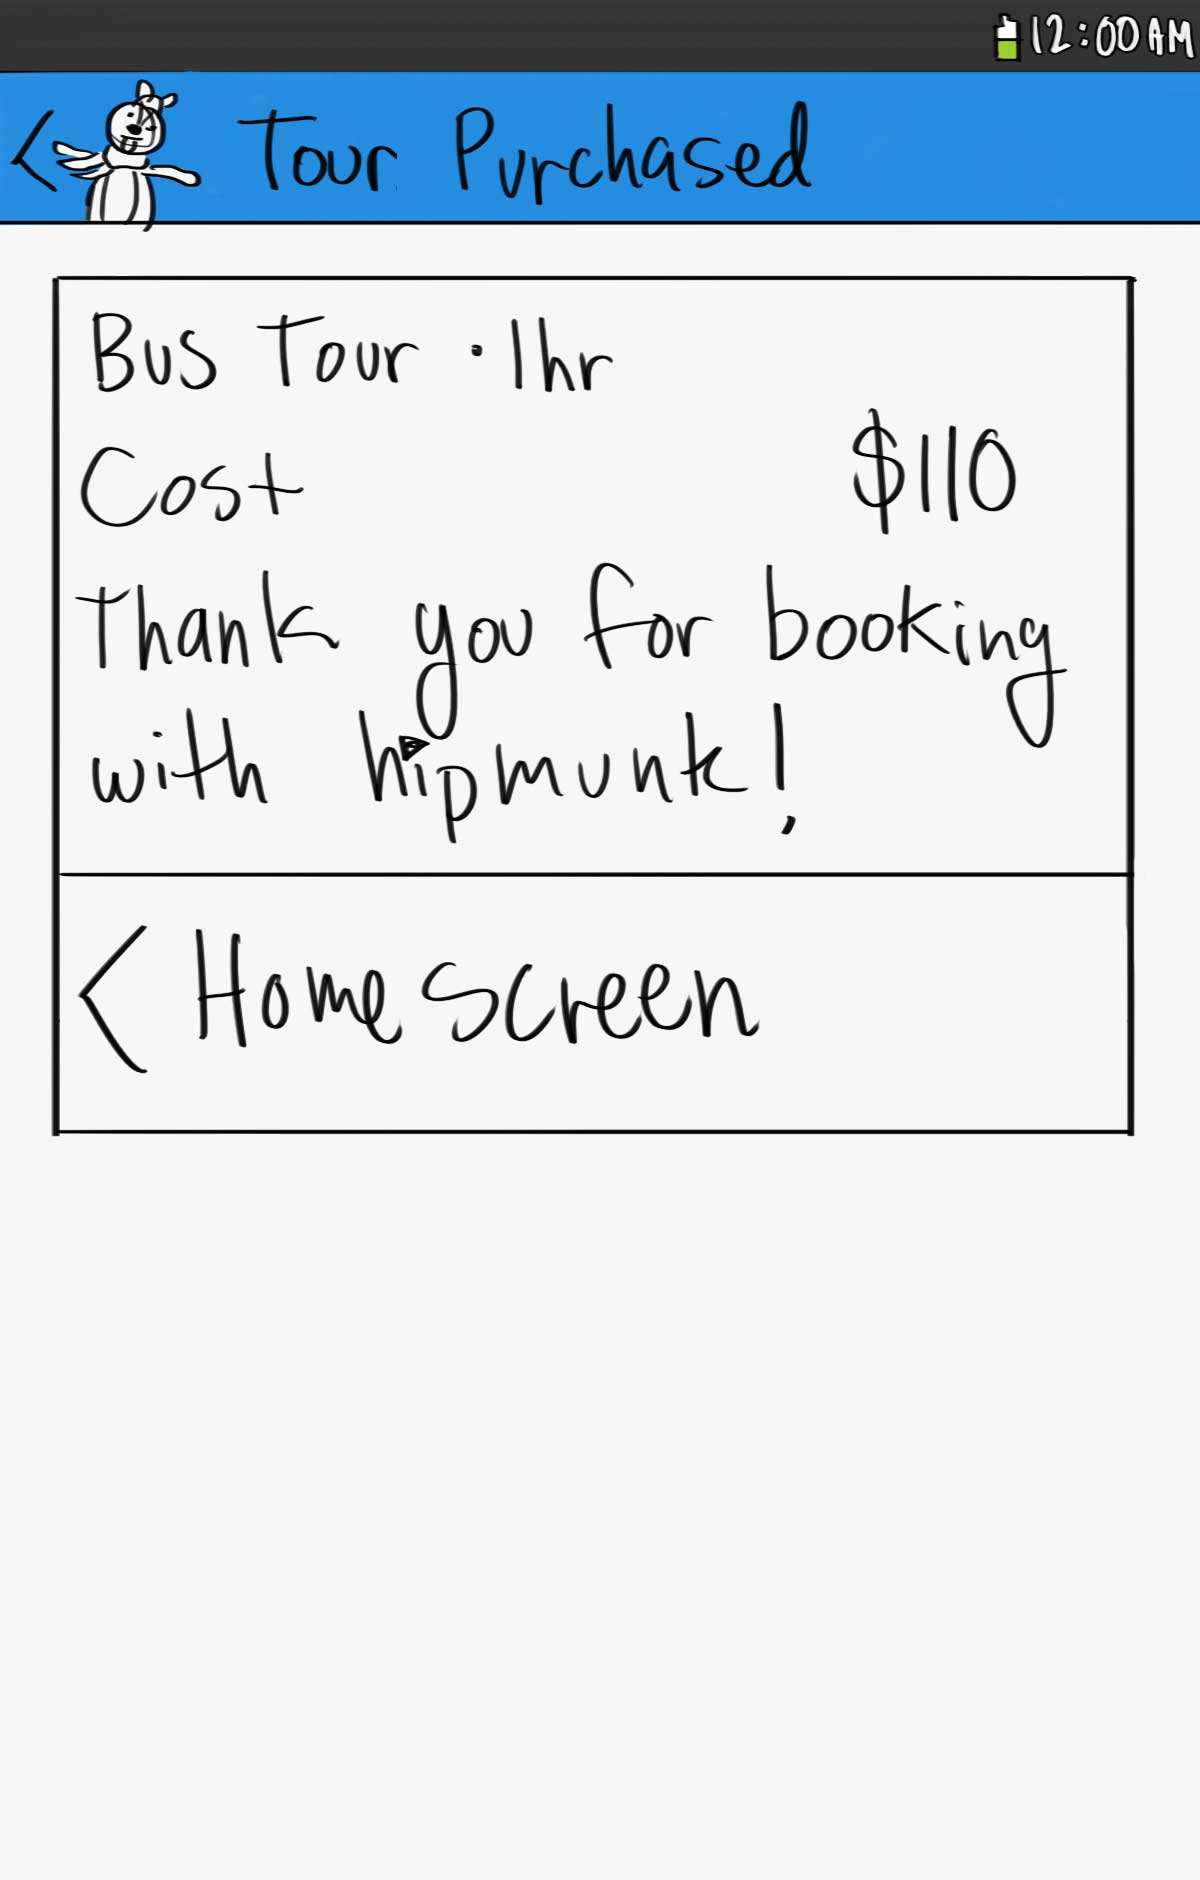 12:00 AM
< Tour Purchased
Bus Tour · 1hr
Cost $110
Thank you for booking
with hipmunk!
< Home screen